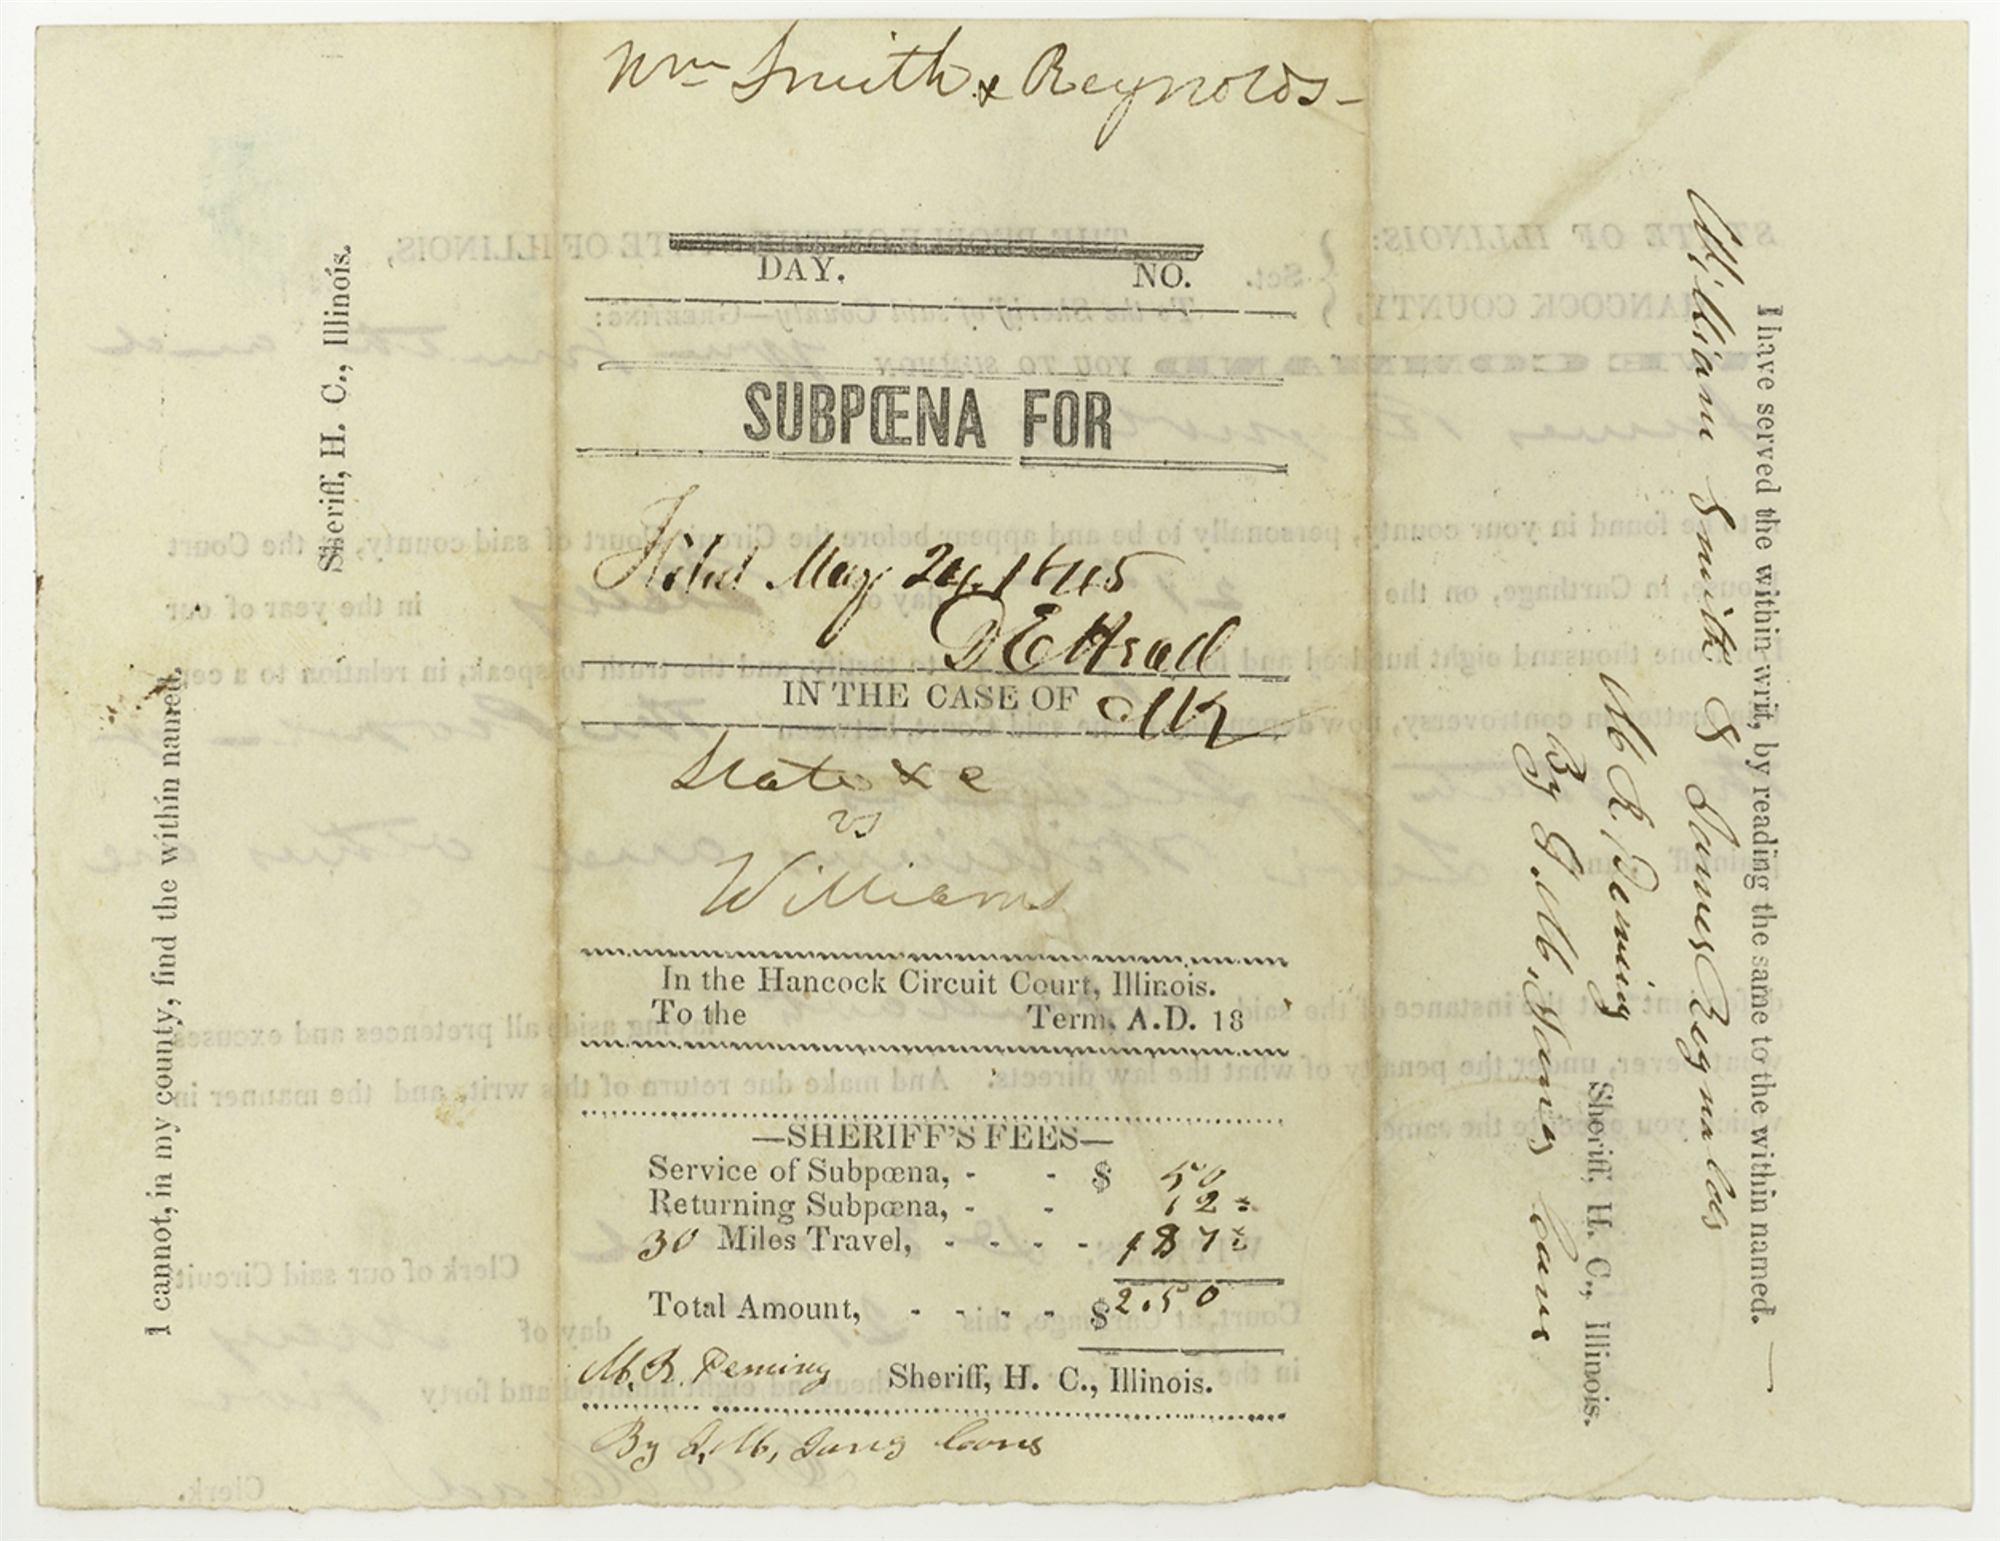 Wm Smith & Reynolds-
DAY. NO.
SUBPŒNA FOR
Filed May 24, 1845
D E Head
IN THE CASE OF Clk
State & c
vs
Williams
In the Hancock Circuit Court, Illinois.
To the Term, A.D. 18
—SHERIFF'S FEES—
Service of Subpœna, - - $ 50
Returning Subpœna, - - 12½
30 Miles Travel, - - - - 187½
Total Amount, - - - - $2.50
M. R. Deming Sheriff, H. C., Illinois.
By J. M, Cons
I cannot, in my county, find the within named.
Sheriff, H. C., Illinois.
I have served the within writ, by reading the same to the within named. —
William Smith & James Reynolds
M R Deming Sheriff, H. C., Illinois.
By J. M, Cons